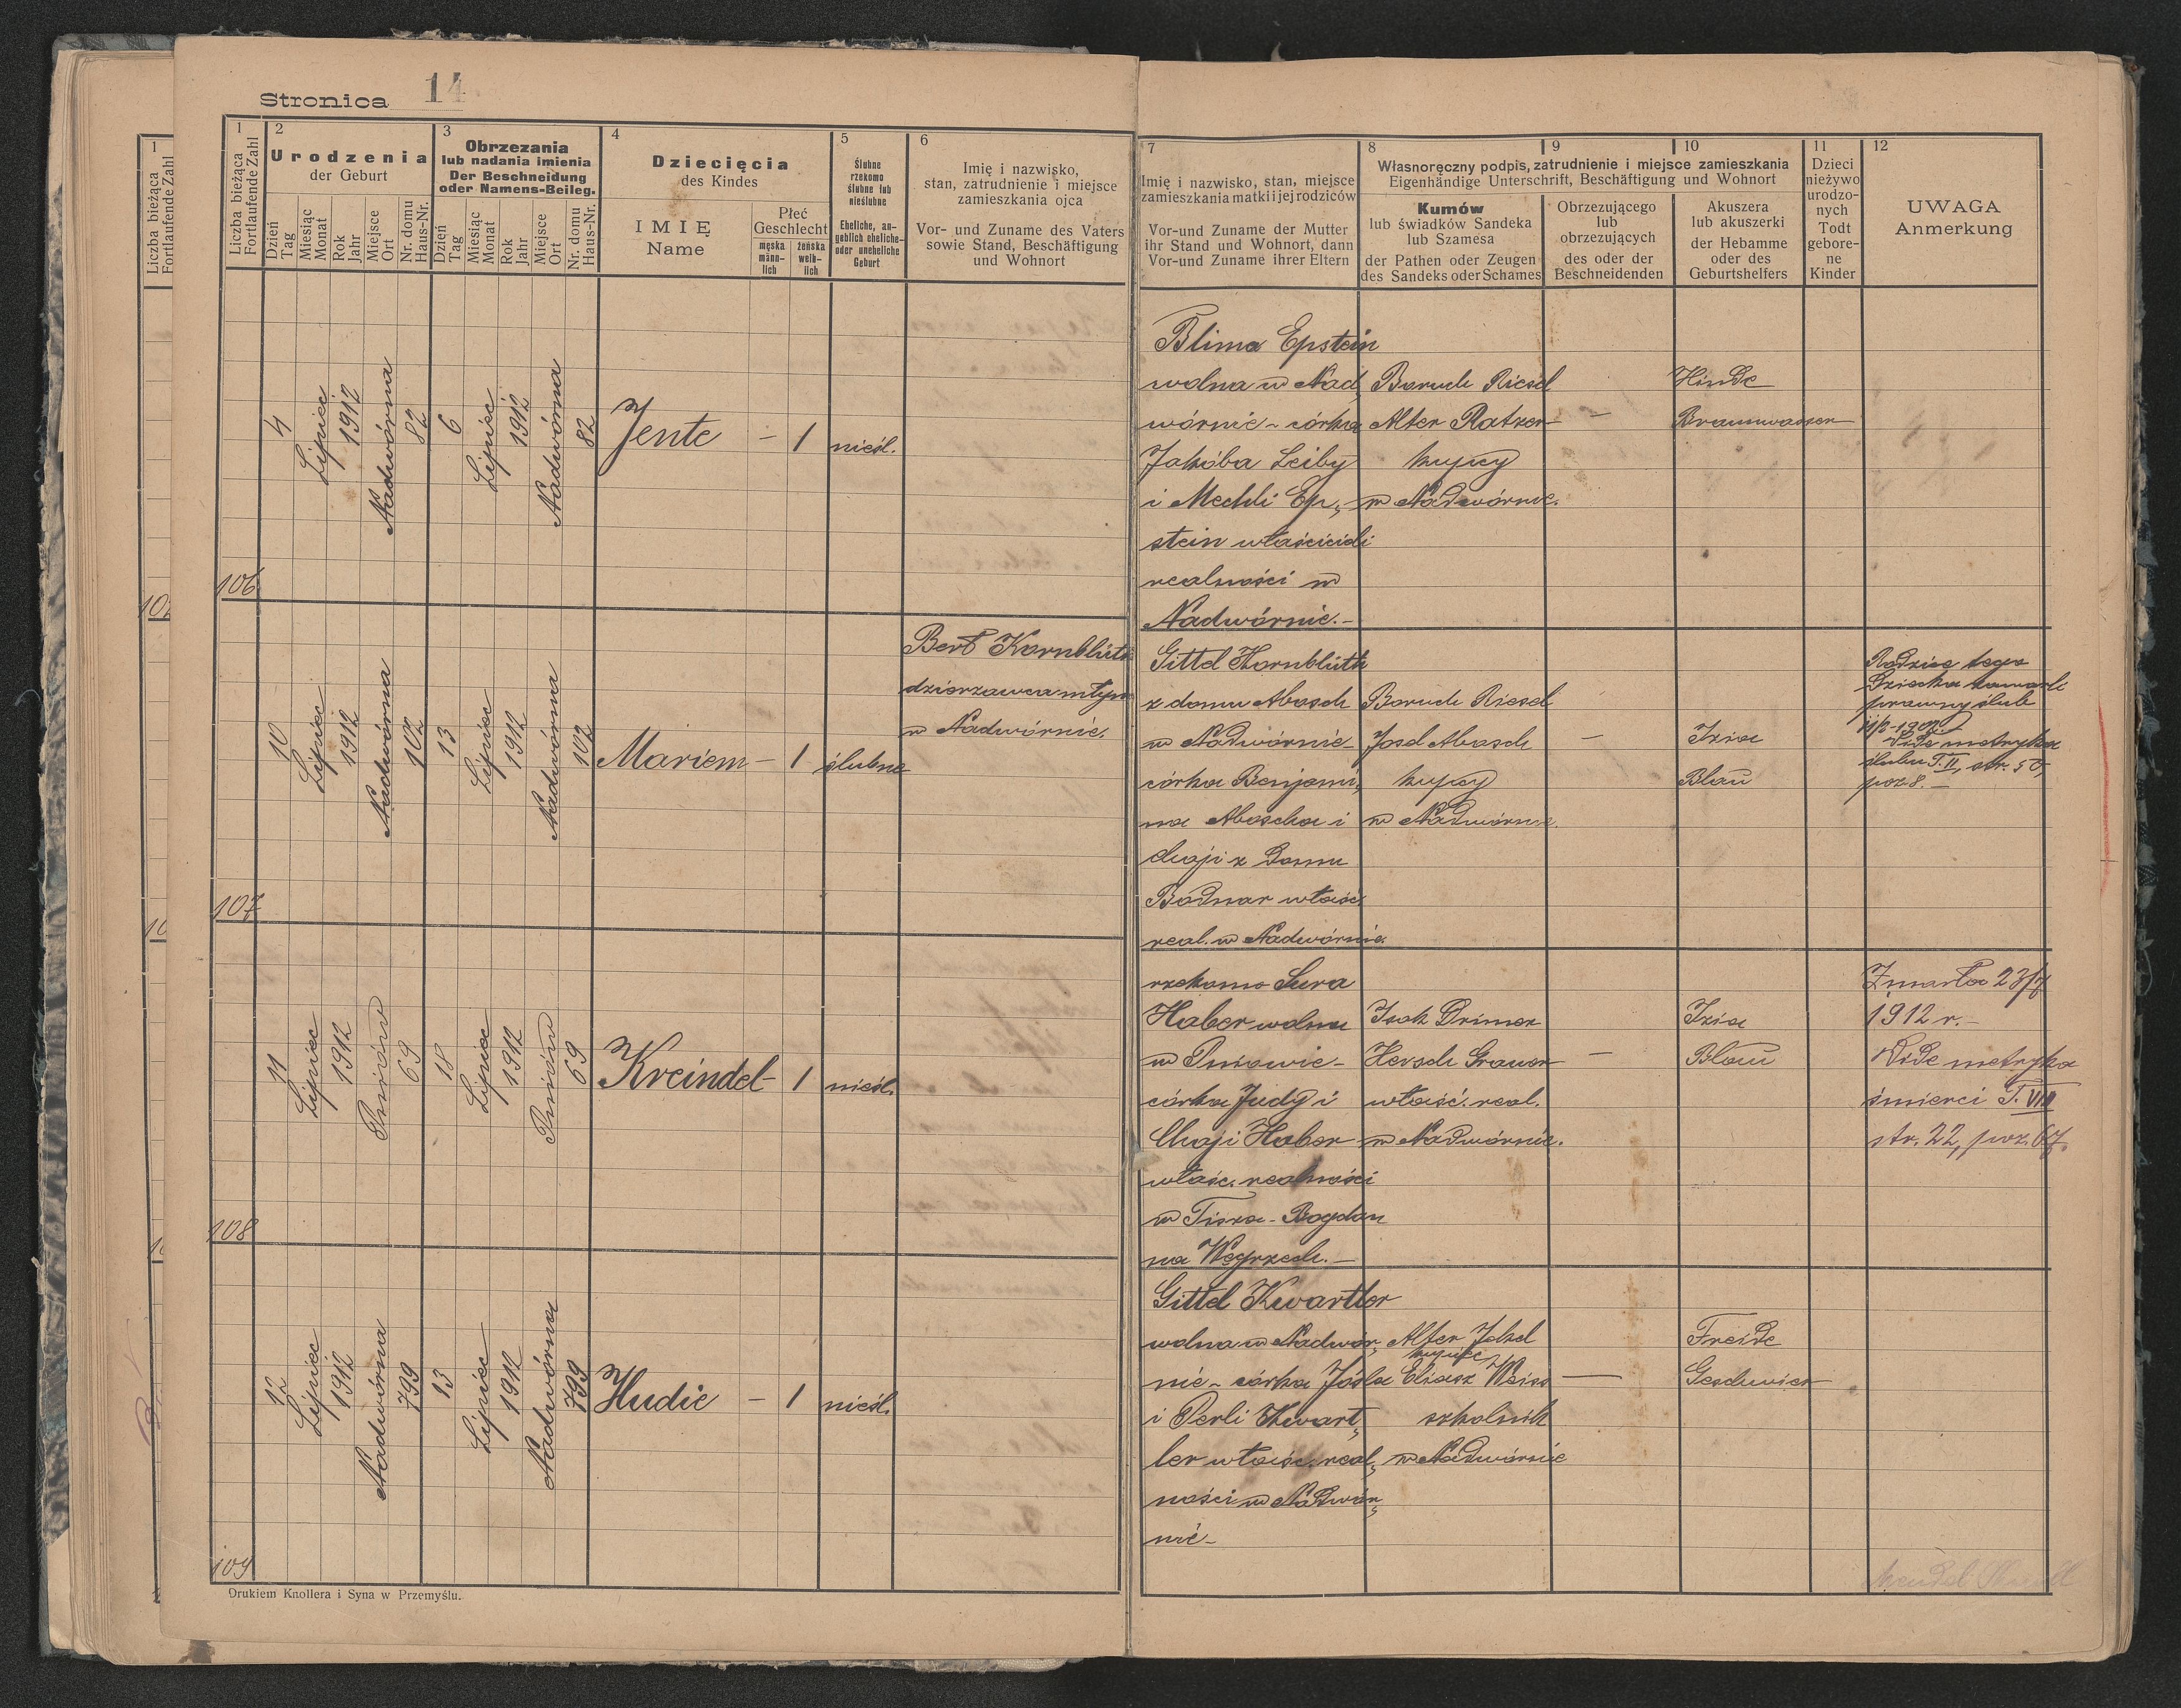 Stronica 14
1
Liczba bieżąca
Fortlaufende Zahl
2
Urodzenia
der Geburt
Dzień
Tag
Miesiąc
Monat
Rok
Jahr
Miejsce
Ort
Nr. domu
Haus-Nr.
3
Obrzezania
lub nadania imienia
Der Beschneidung
oder Namens-Beileg.
Dzień
Tag
Miesiąc
Monat
Rok
Jahr
Miejsce
Ort
Nr. domu
Haus-Nr.
4
Dziecięcia
des Kindes
IMIĘ
Name
Płeć
Geschlecht
męska
männ-
lich
żeńska
weib-
lich
5
Ślubne
rzekomo
ślubne lub
nieślubne
Eheliche, an-
geblich eheliche-
oder uneheliche
Geburt
6
Imię i nazwisko,
stan, zatrudnienie i miejsce
zamieszkania ojca
Vor- und Zuname des Vaters
sowie Stand, Beschäftigung
und Wohnort
7
Imię i nazwisko, stan, miejsce
zamieszkania matki i jej rodziców
Vor-und Zuname der Mutter
ihr Stand und Wohnort, dann
Vor-und Zuname ihrer Eltern
8
9
10
Własnoręczny podpis, zatrudnienie i miejsce zamieszkania
Eigenhändige Unterschrift, Beschäftigung und Wohnort
Kumów
lub świadków Sandeka
lub Szamesa
der Pathen oder Zeugen
des Sandeks oder Schames
Obrzezującego
lub
obrzezujących
des oder der
Beschneidenden
Akuszera
lub akuszerki
der Hebamme
oder des
Geburtshelfers
11
Dzieci
nieżywo
urodzo-
nych
Todt
gebore-
ne
Kinder
12
UWAGA
Anmerkung
106
4
Lipiec
1912
Nadwórna
82
6
Lipiec
1912
Nadwórna
82
Jente - 1 nieśl.
Blima Epstein
wolna w Nad„
wórnie - córka
Jakóba Leiby
i Mechli Ep„
stein właścicieli
realności w
Nadwórnie.-
Baruch Riesel
Alter Ratzer
kupcy
w Nadwórnie.
-
Hinde
Braunwasser
107
10
Lipiec
1912
Nadwórna
102
13
Lipiec
1912
Nadwórna
102
Mariem - 1 ślubne
Berl Kornblüth
dzierzawca młyn
w Nadwórnie.
Gittel Kornblüth
z domu Abosch
w Nadwórnie -
córka Benjami„
na Aboscha i
Chaji z domu
Bodnar właść.
real. w Nadwórnie.
Baruch Riesel
Josel Abosch
kupcy
w Nadwórnie.
-
Izia
Blau
Rodzice tego
Dziecka zawarli
prawny ślub
Vide metryka
ślubu T. II, str. 50,
poz 8. -
108
11
Lipiec
1912
Pniów
69
18
Lipiec
1912
Pniów
69
Kreindel - 1 nieśl.
rzekomo Sura
Haber wolna
w Pniowie -
córka Judy i
Chaji Haber
właśc. realności
w Tisza-Bogdan
na Węgrzech. -
Isak Drimer
Hersch Grauer
właść. real.
w Nadwórnie.
-
Izia
Blau
Zmarła 23/7
1912 r. -
Vide metryka
śmierci T. VIII
str. 22, poz. 67.
109
12
Lipiec
1912
Nadwórna
799
13
Lipiec
1912
Nadwórna
799
Hudie - 1 nieśl.
Gittel Kwartler
wolna w Nadwór„
nie - córka Jósla
i Perli Kwart„
ler właśc. real„
ności w Nadwór„
nie -
Alter Jekel
kupiec
Eliasz Weiss
szkolnik
w Nadwórnie
-
Freide
Geschwier
Drukiem Knollera i Syna w Przemyślu.